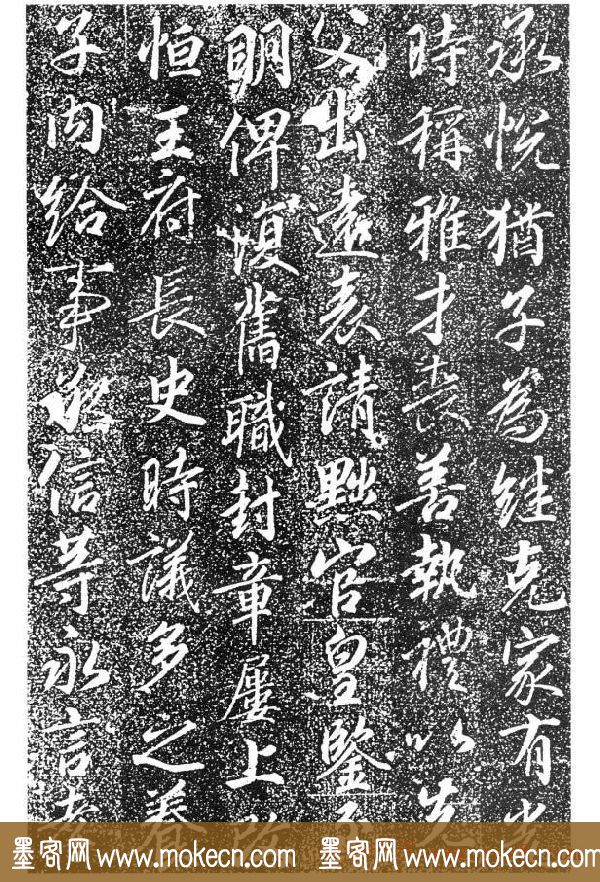 承悅猶子為继克家有光
時稱雅才喪善執禮以先
父出遠表請黜官皇鑒
明俾復舊職封章屢上
恒王府長史時議多之養
子內給事承信等永言孝
墨客网 www.mokecn.com 墨客网 www.mokecn.com